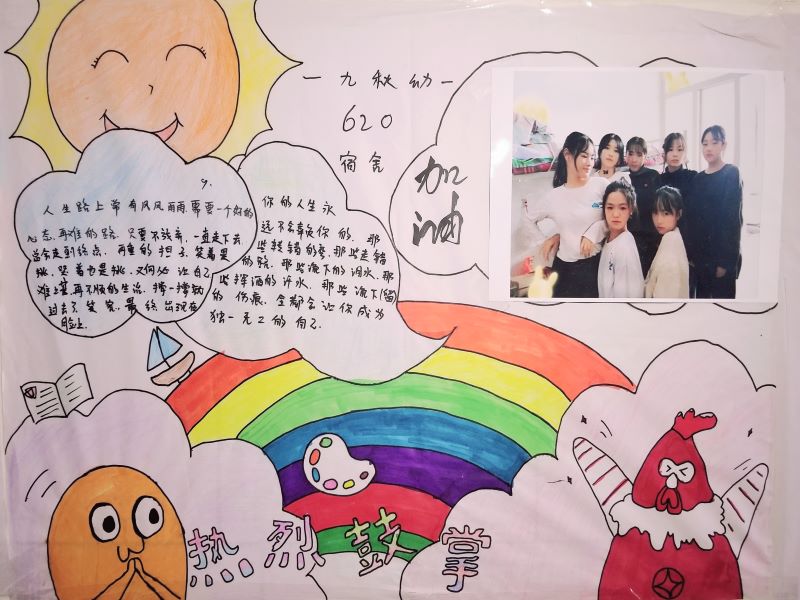 一九秋幼一
620
宿舍
加
油
人生路上常有风风雨雨需要一个好的
心态,再难的路,只要不放弃,一直走下去
总会走到终点,再重的担子,笑着是
挑,哭着也是挑,又何必让自己
难堪,再不顺的生活,撑一撑就
过去了,笑容,最终出现在
脸上.
你的人生永
远不会辜负你的,那
些转错的弯,那些走错
的路,那些流下的泪水,那
些挥洒的汗水,那些流下(留)
的伤痕,全都会让你成为
独一无二的自己.
热烈鼓掌